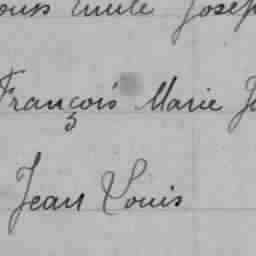 Emile Joseph
François Marie
Jean Louis